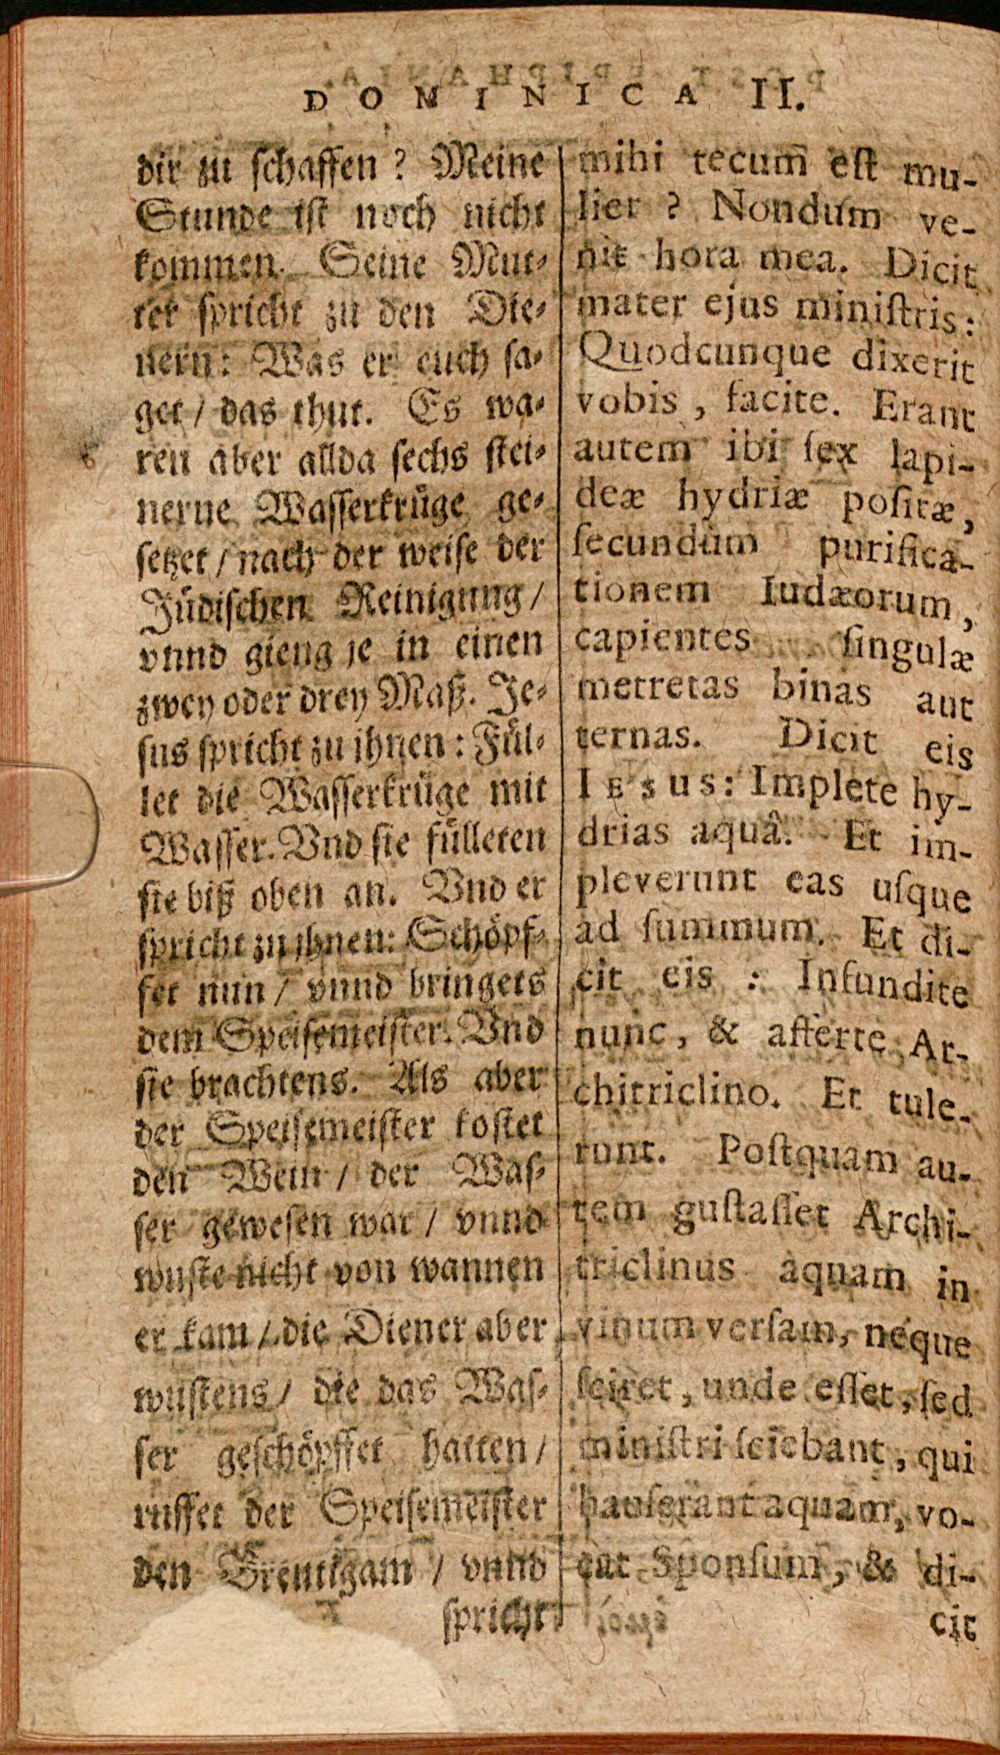 DOMINICA II.
dir zu schaffen? Meine
Stunde ist noch nicht
kommen. Seine Mut-
ter spricht zu den Die-
nern: Was er euch sa-
get / das thut. Es wa-
ren aber allda sechs stei-
nerne Wasserkrüge ge-
setzet / nach der weise der
Jüdischen Reinigung /
vnnd gieng je in einen
zwey oder drey Maß. Je-
sus spricht zu ihnen: Fül-
let die Wasserkrüge mit
Wasser. Vnd sie fülleten
sie biß oben an. Vnd er
spricht zu ihnen: Schöpf-
fet nun / vnnd bringets
dem Speisemeister. Vnd
sie brachtens. Als aber
der Speisemeister kostet
den Wein / der Was-
ser gewesen war / vnnd
wuste nicht von wannen
er kam / die Diener aber
wustens / die das Was-
ser geschöpffet hatten /
ruffet der Speisemeister
den Breutigam / vnnd
spricht
mihi tecum est mu-
lier? Nondum ve-
nit hora mea. Dicit
mater ejus ministris:
Quodcunque dixerit
vobis, facite. Erant
autem ibi sex lapi-
deæ hydriæ positæ,
secundùm purifica-
tionem Iudæorum,
capientes singulæ
metretas binas aut
ternas. Dicit eis
IESUS: Implete hy-
drias aquâ. Et im-
pleverunt eas usque
ad summum. Et di-
cit eis: Infundite
nunc, & afferte Ar-
chitriclino. Et tule-
runt. Postquam au-
tem gustasset Archi-
triclinus aquam in
vinum versam, neque
sciret, unde esset, sed
ministri sciebant, qui
hauserant aquam, vo-
cat Sponsum, & di-
cit